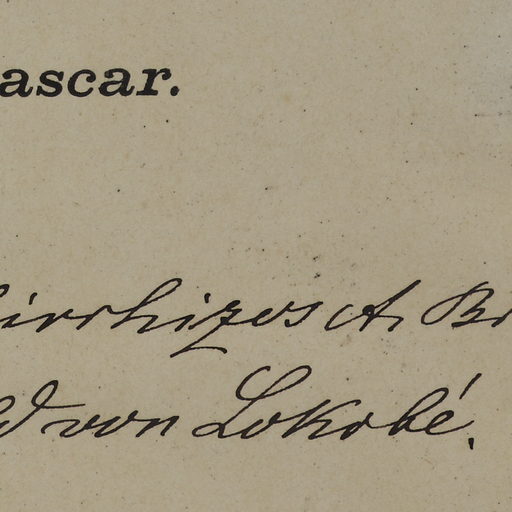 ascar.
irrhizos A. Br
ld von Lokobé.